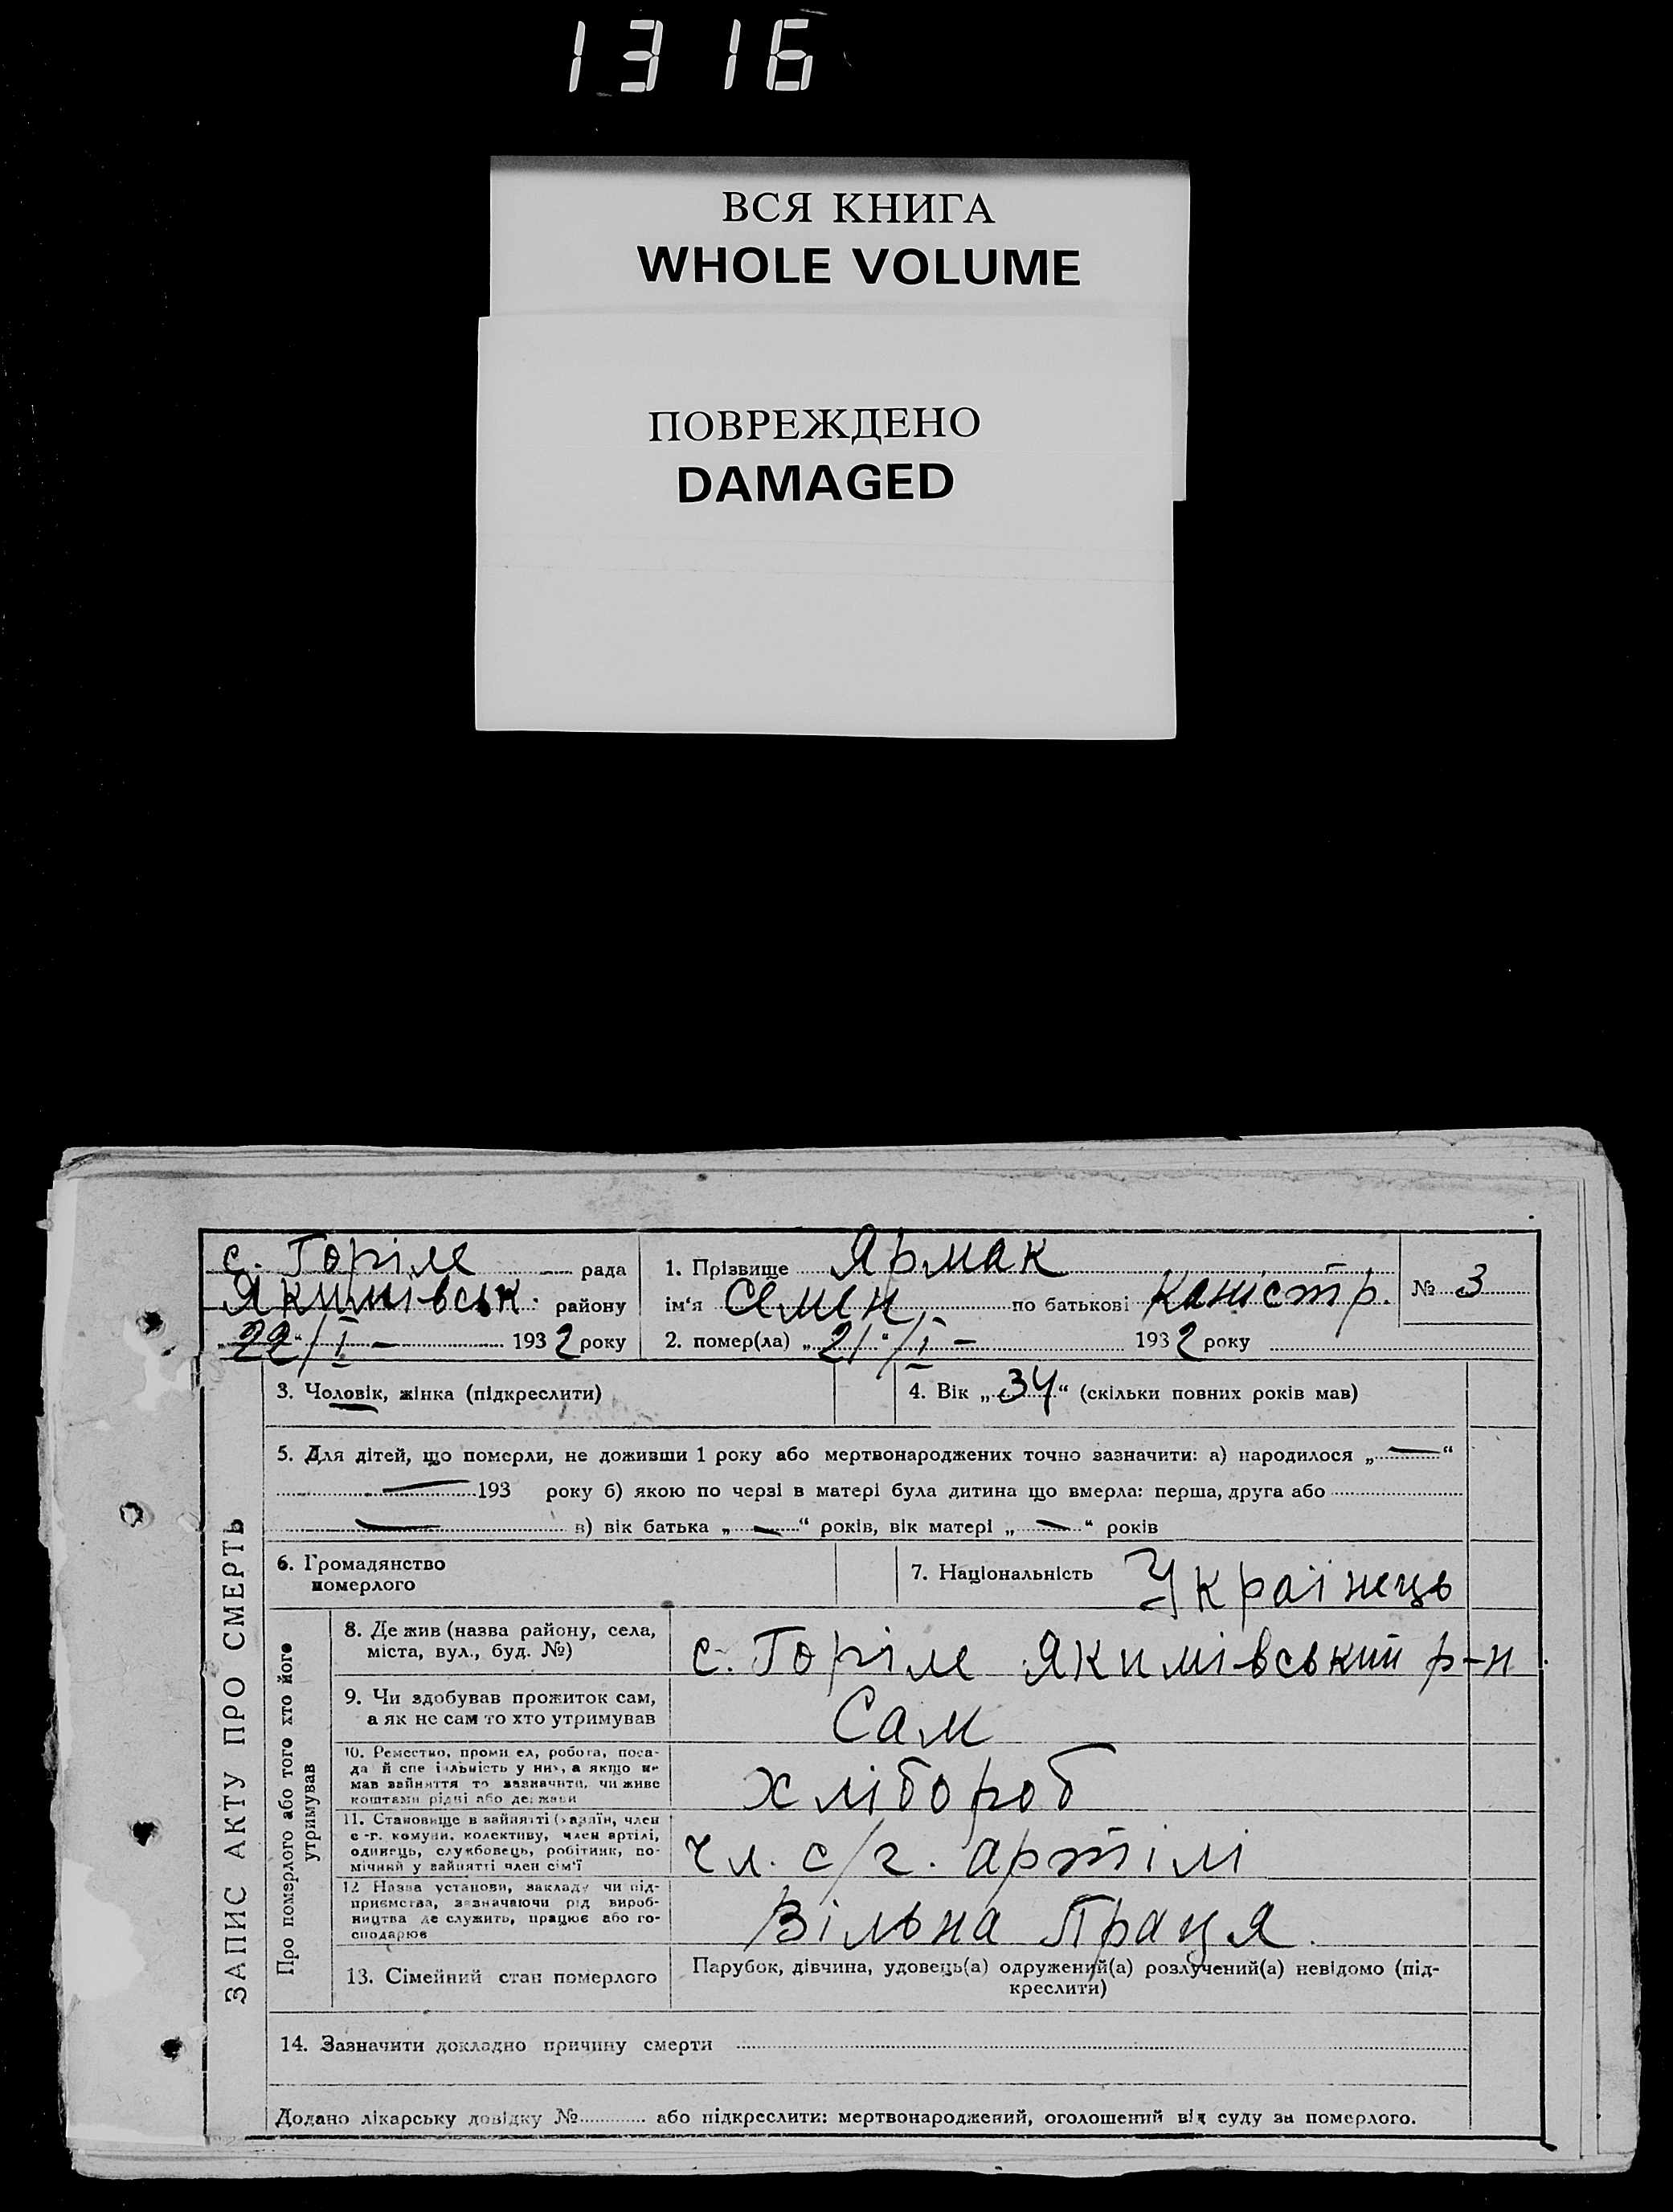 1316
ВСЯ КНИГА
WHOLE VOLUME
ПОВРЕЖДЕНО
DAMAGED
с. Горіле рада
Якимівськ. району
„22“/I – 1932 року
1. Прізвище Ярмак
ім‘я Семен по батькові Каністр.
№ 3
2. помер(ла) „21“/I – 1932 року
ЗАПИС АКТУ ПРО СМЕРТЬ
3. Чоловік, жінка (підкреслити)
4. Вік „34“ (скільки повних років мав)
5. Для дітей, що померли, не доживши 1 року або мертвонароджених точно зазначити: а) народилося „—“
— 193 року б) якою по черзі в матері була дитина що вмерла: перша, друга або
— в) вік батька „—“ років, вік матері „—“ років
6. Громадянство
померлого
7. Національність Українець
Про померлого або того хто його
утримував
8. Де жив (назва району, села,
міста, вул., буд. №)
с. Горіле Якимівський р-н
9. Чи здобував прожиток сам,
а як не сам то хто утримував
Сам
10. Ремество, промисел, робота, поса-
да й спеціяльність у них, а якщо не
мав зайняття то зазначити, чи живе
коштами рідні або держави
хлібороб
11. Становище в зайнятті (хазяїн, член
с-г. комуни, колективу, член артілі,
одинець, службовець, робітник, по-
мічний у зайнятті член сім'ї
чл. с/г. артілі
12 Назва установи, закладу чи під-
приємства, зазначаючи рід вироб-
ництва де служить, працює або го-
сподарює
Вільна Праця.
13. Сімейний стан померлого
Парубок, дівчина, удовець(а) одружений(а) розлучений(а) невідомо (під-
креслити)
14. Зазначити докладно причину смерти
Додано лікарську довідку № або підкреслити: мертвонароджений, оголошений від суду за померлого.